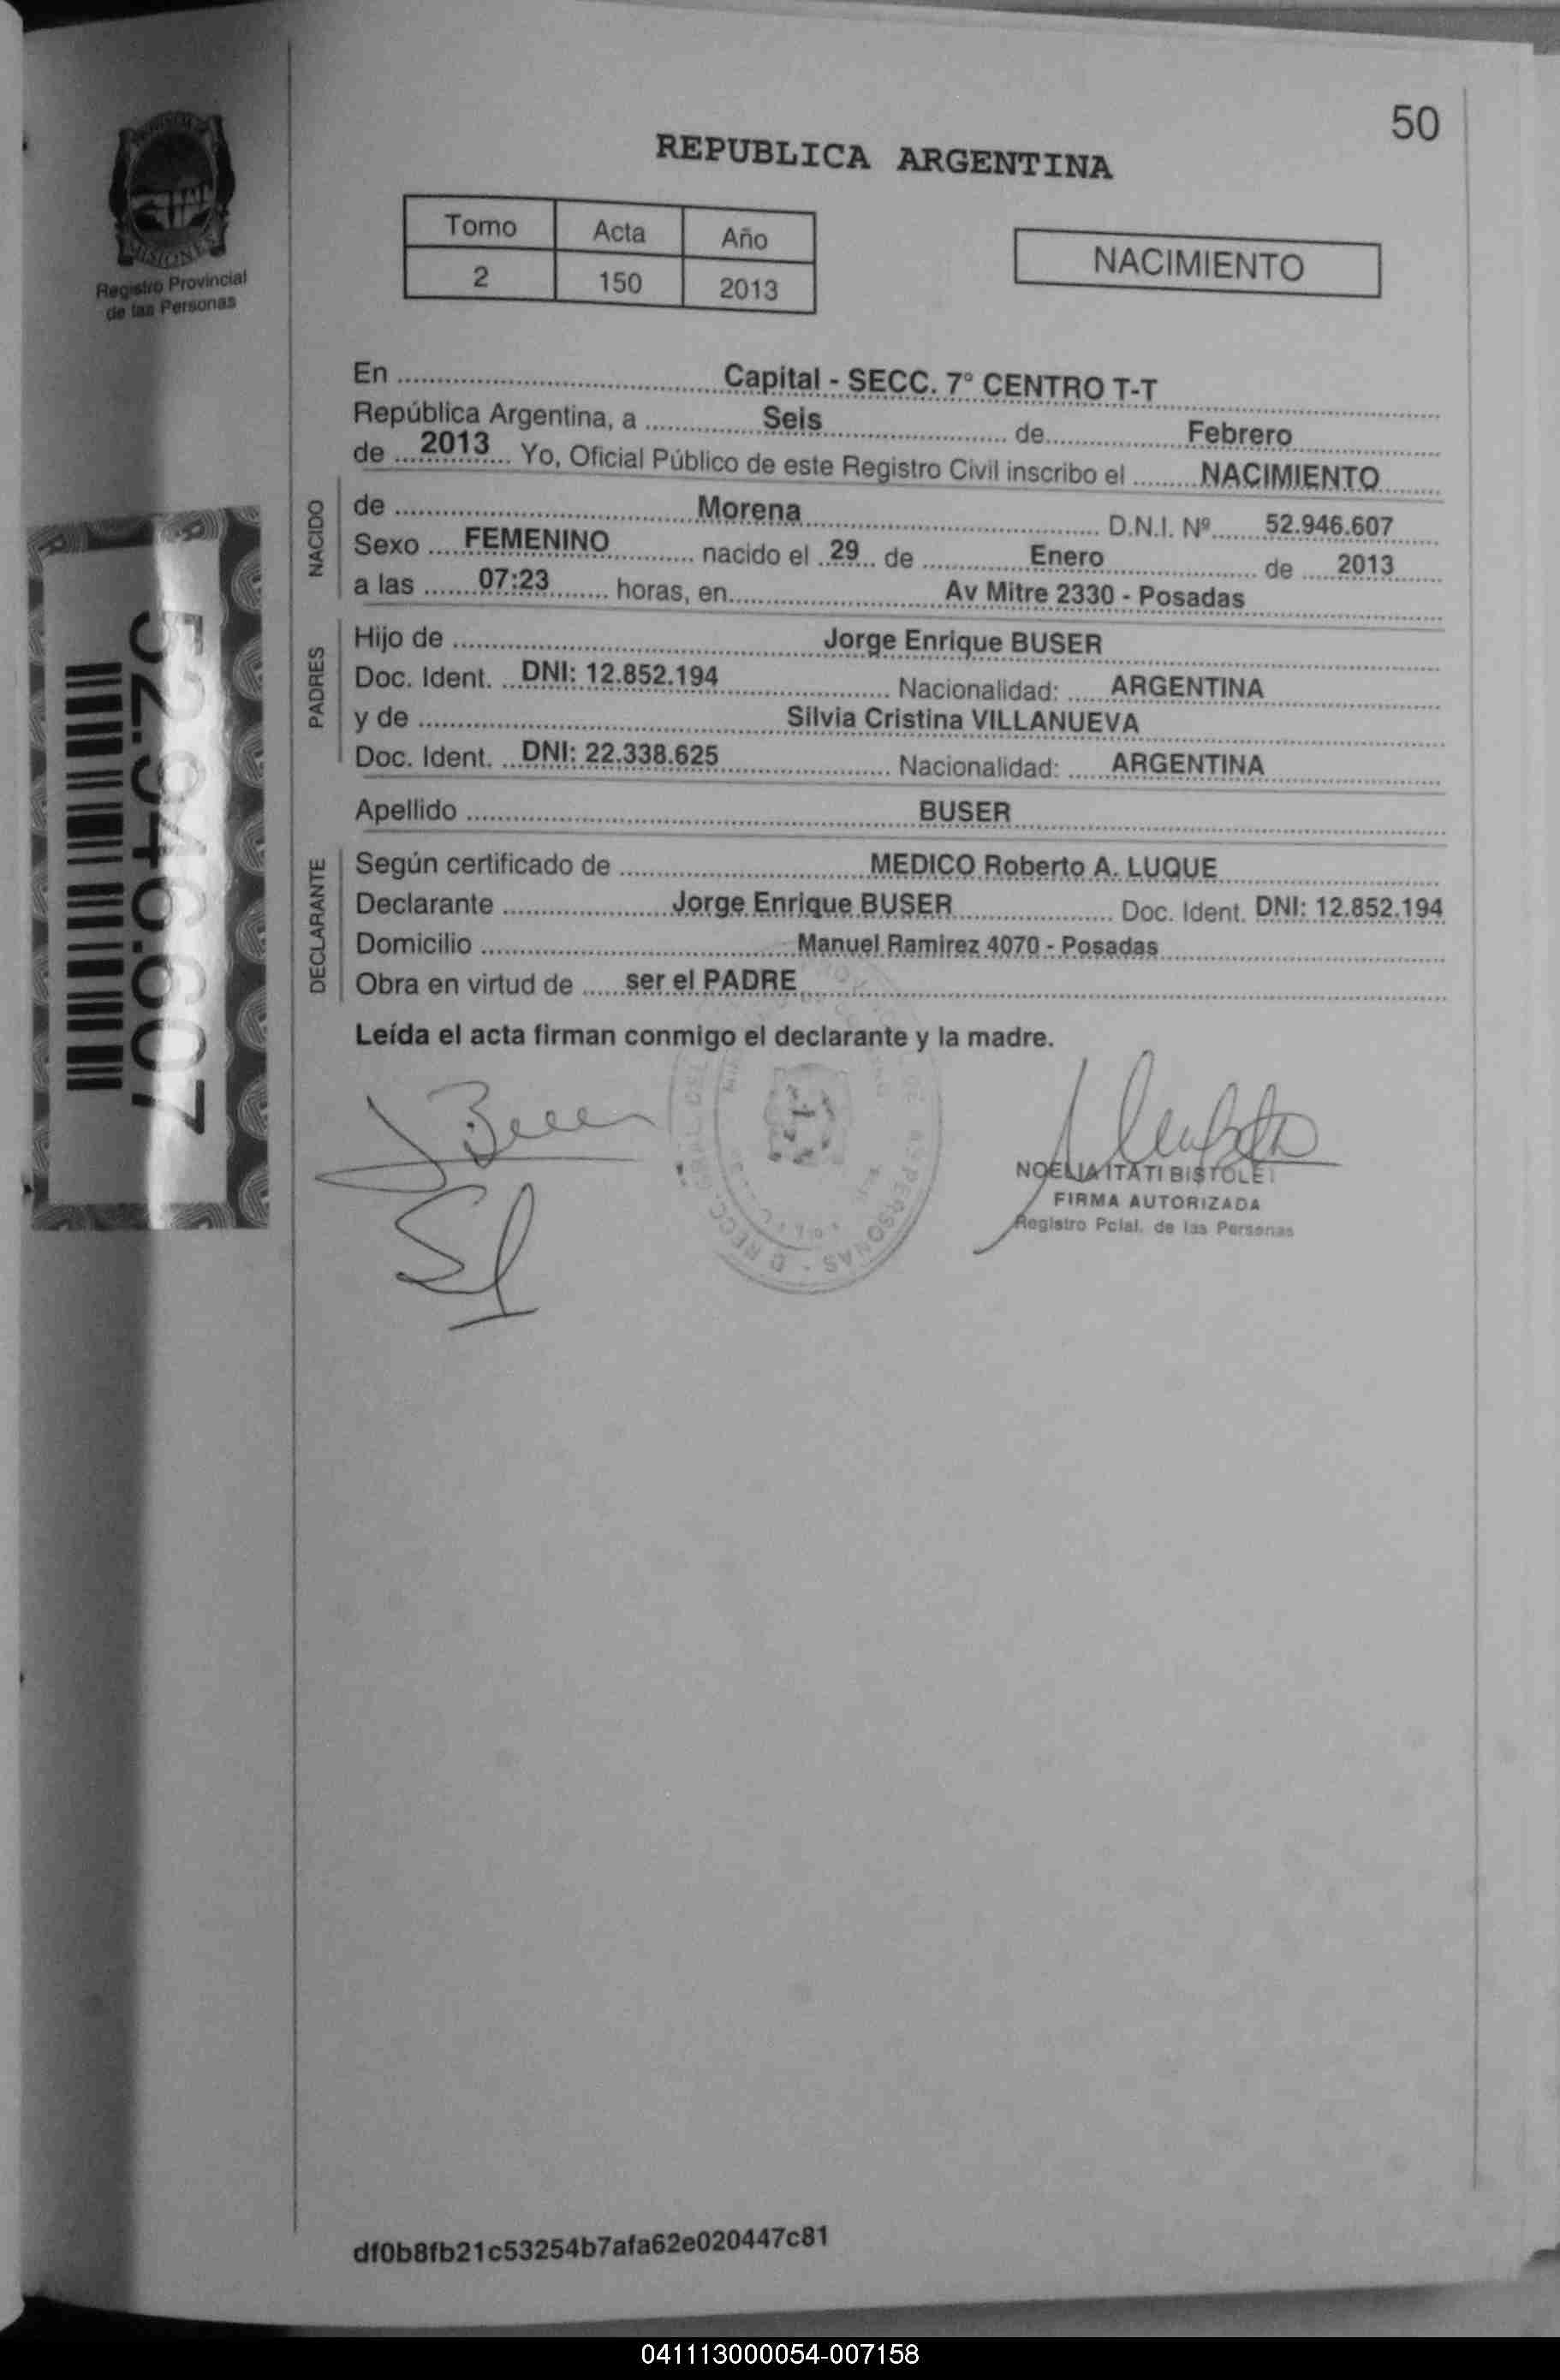 50
REPUBLICA ARGENTINA
MISIONES
Registro Provincial
de las Personas
Tomo Acta Año
2 150 2013
NACIMIENTO
En Capital - SECC. 7º CENTRO T-T
República Argentina, a Seis de Febrero
de 2013 Yo, Oficial Público de este Registro Civil inscribo el NACIMIENTO
NACIDO
de Morena D.N.I. Nº 52.946.607
Sexo FEMENINO nacido el 29 de Enero de 2013
a las 07:23 horas, en Av Mitre 2330 - Posadas
PADRES
Hijo de Jorge Enrique BUSER
Doc. Ident. DNI: 12.852.194 Nacionalidad: ARGENTINA
y de Silvia Cristina VILLANUEVA
Doc. Ident. DNI: 22.338.625 Nacionalidad: ARGENTINA
Apellido BUSER
DECLARANTE
Según certificado de MEDICO Roberto A. LUQUE
Declarante Jorge Enrique BUSER Doc. Ident. DNI: 12.852.194
Domicilio Manuel Ramirez 4070 - Posadas
Obra en virtud de ser el PADRE
Leída el acta firman conmigo el declarante y la madre.
52.946.607
NOELIA ITATI BISTOLEI
FIRMA AUTORIZADA
Registro Pcial. de las Personas
df0b8fb21c53254b7afa62e020447c81
041113000054-007158